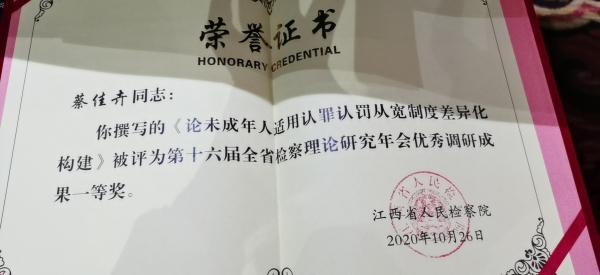 荣誉证书
HONORARY CREDENTIAL
蔡佳卉同志:
你撰写的《论未成年人适用认罪认罚从宽制度差异化
构建》被评为第十六届全省检察理论研究年会优秀调研成
果一等奖。
江西省人民检察院
2020年10月26日